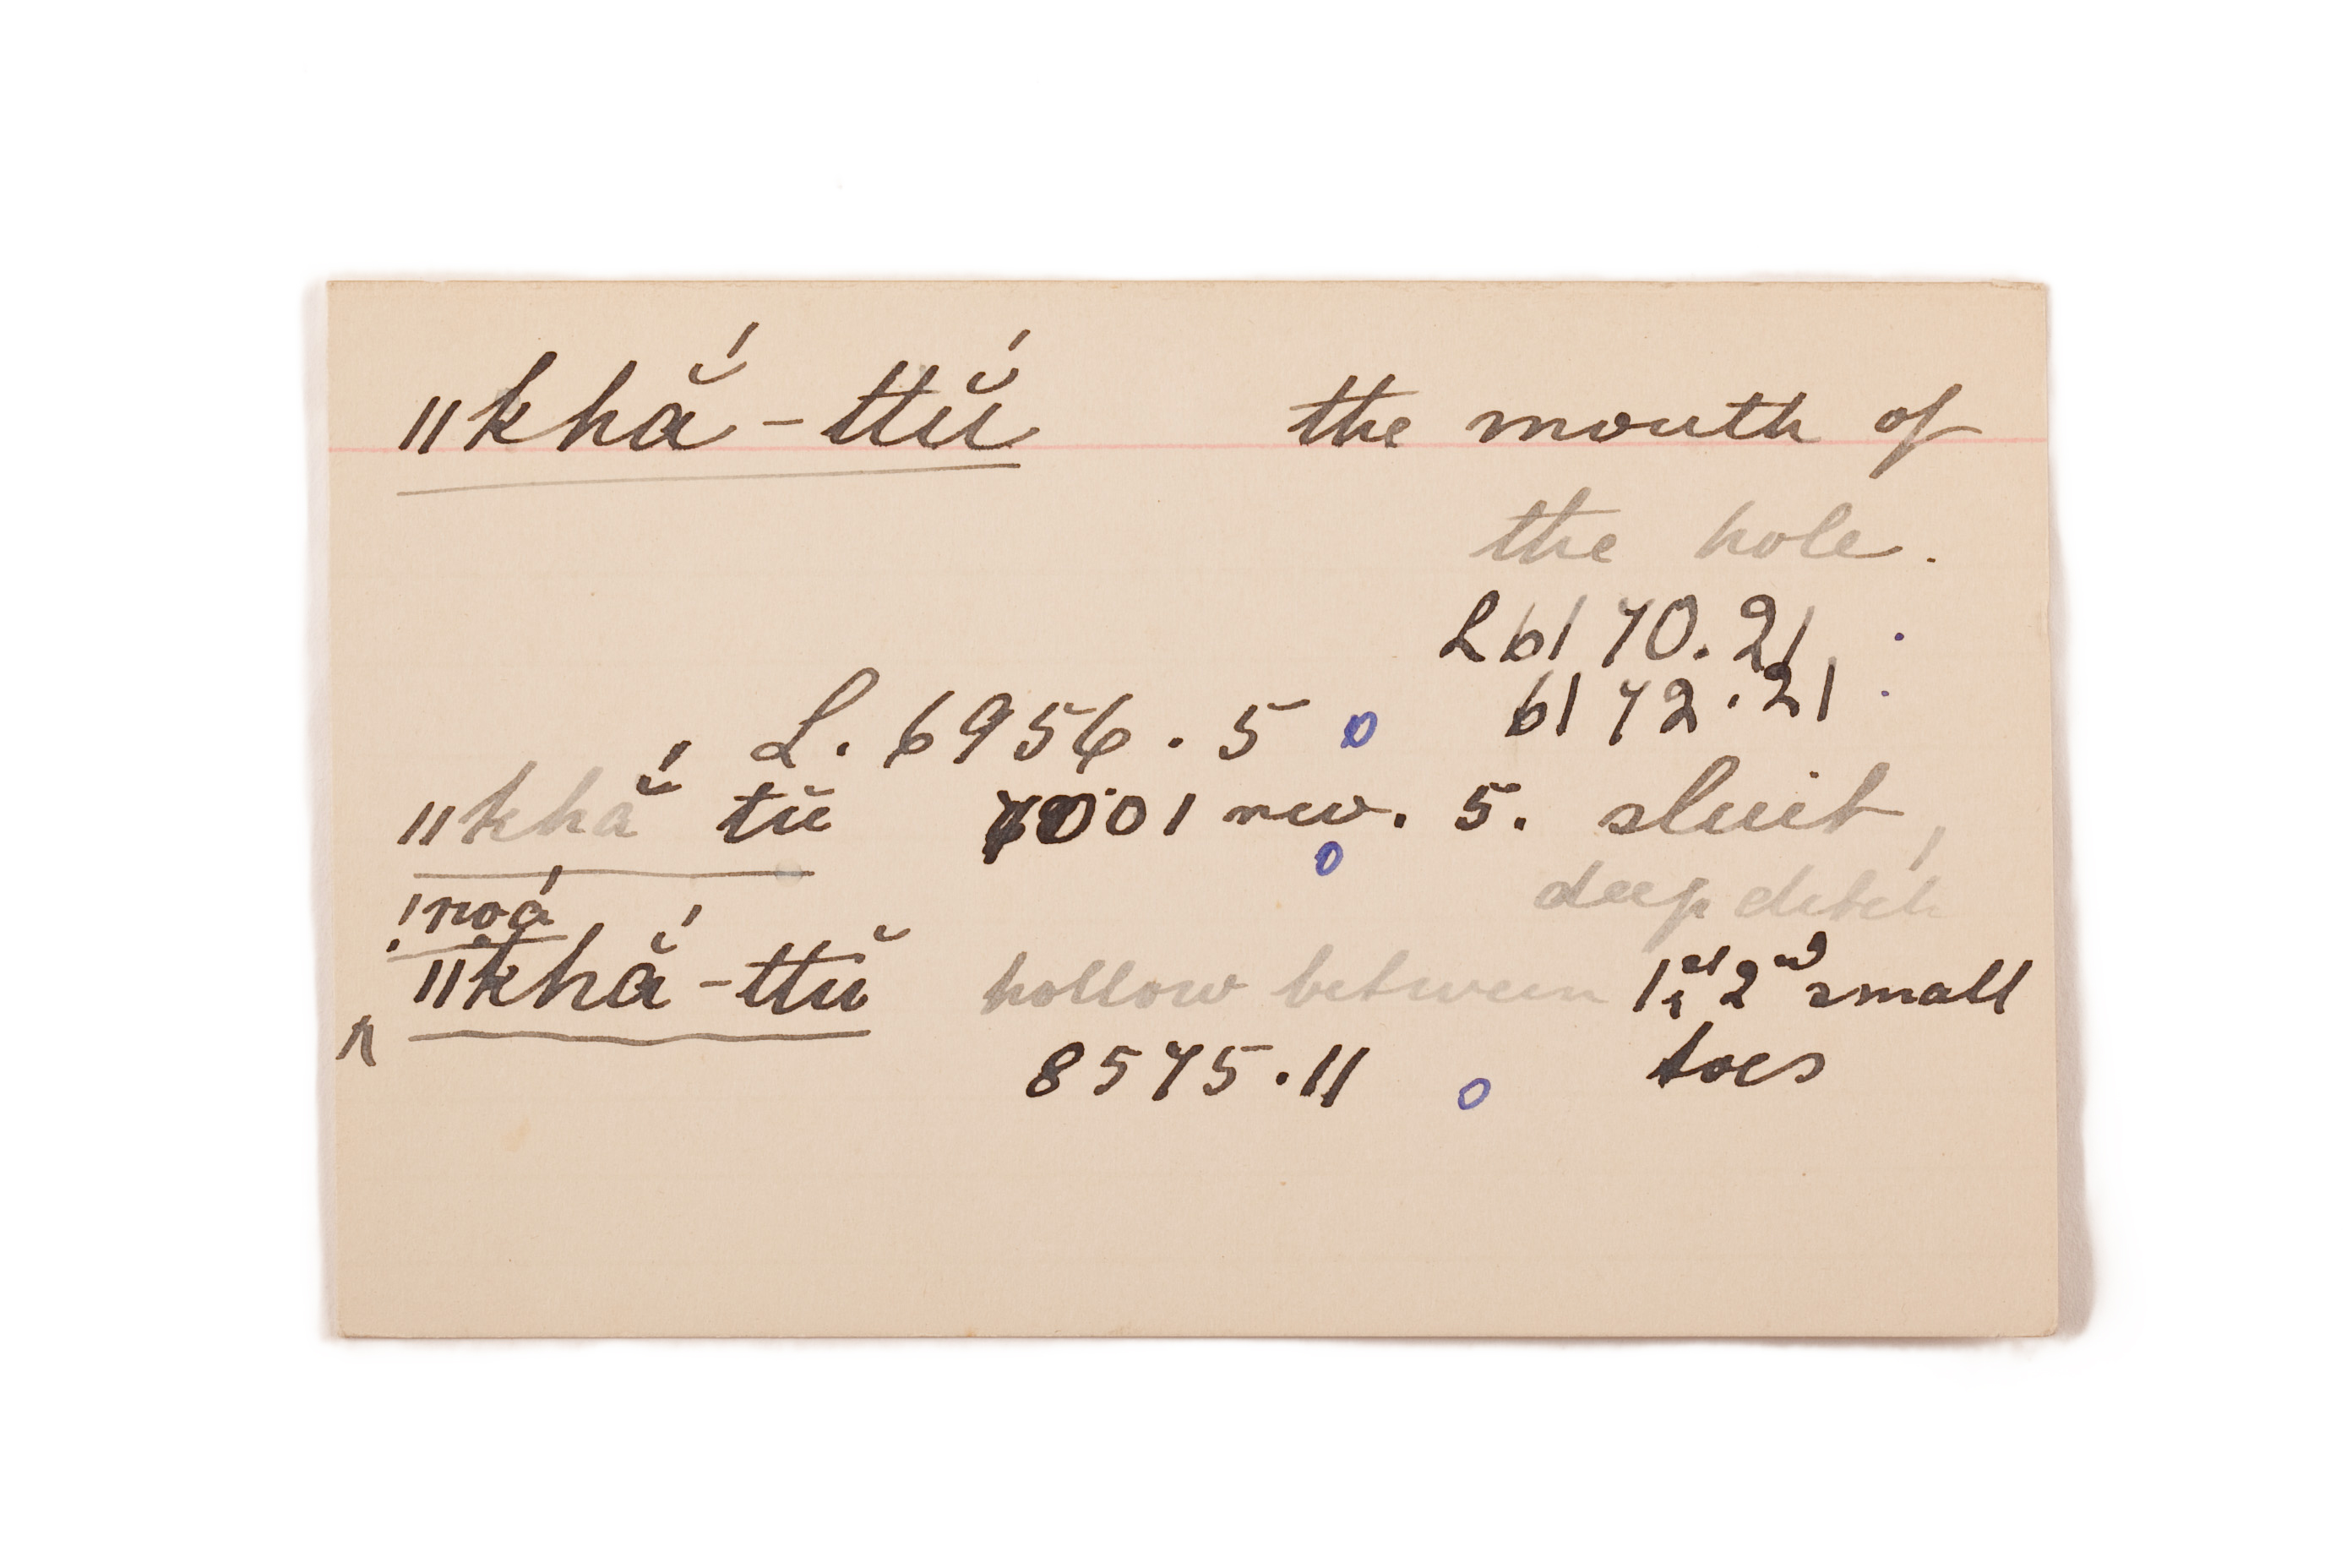 ǁkhā̆́-ttŭ́ the mouth of
the hole.
L 6170.21
6172.21
L. 6956.5
ǁkhā̆́ tŭ 7001 rev. 5. sluit,
deep ditch
!noá
ǁkhắ-ttŭ hollow between 1st & 2nd small
8575.11 toes